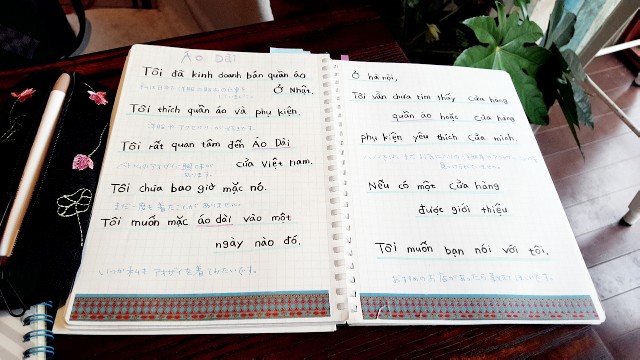 Áo Dài
Tôi đã kinh doanh bán quần áo
Ở Nhật.
Tôi thích quần áo và phụ kiện.
Tôi rất quan tâm đến Áo Dài
của Việt nam.
Tôi chưa bao giờ mặc nó.
まだ一度も着たことがありません。
Tôi muốn mặc áo dài vào một
ngày nào đó.
いつか私もアオザイを着てみたいです。
Ở hà nội,
Tôi vẫn chưa tìm thấy cửa hàng
quần áo hoặc cửa hàng
phụ kiện yêu thích của mình.
Nếu có một cửa hàng
được giới thiệu
Tôi muốn bạn nói với tôi.
おすすめのお店があったら教えてほしいです。